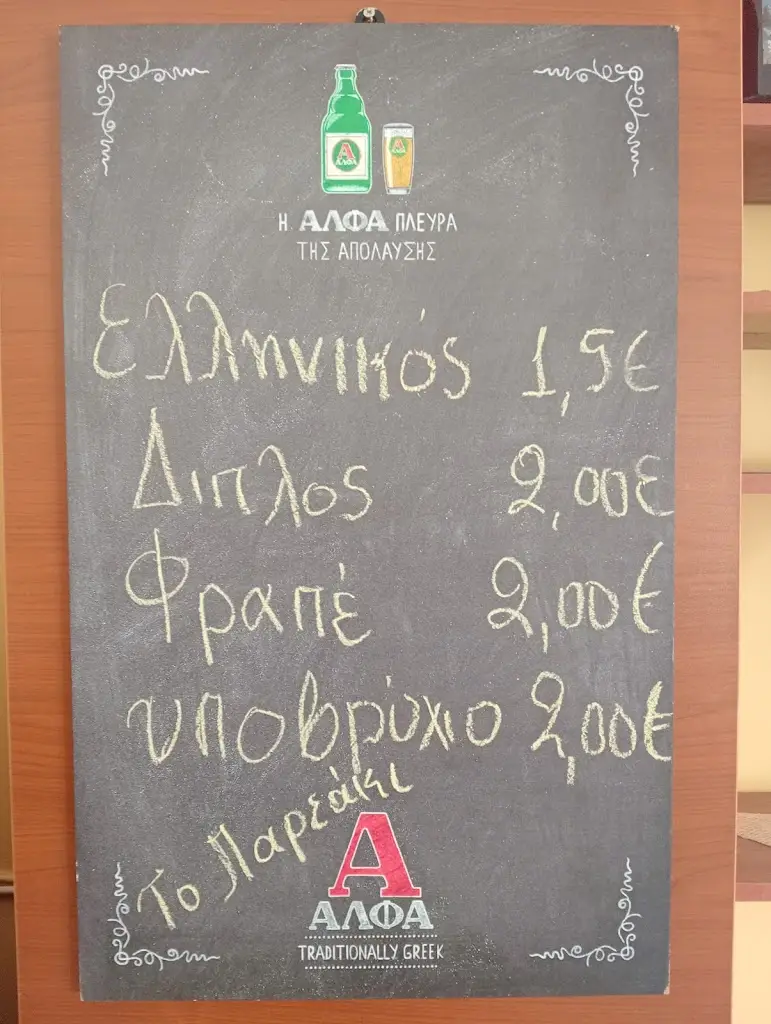 Α
ΑΛΦΑ
Α
ΑΛΦΑ
Η ΑΛΦΑ ΠΛΕΥΡΑ
ΤΗΣ ΑΠΟΛΑΥΣΗΣ
Ελληνικός 1,5€
Διπλος 2,00€
Φραπέ 2,00€
υποβρύχιο 2,00€
Το Παρεάκι
Α
ΑΛΦΑ
TRADITIONALLY GREEK